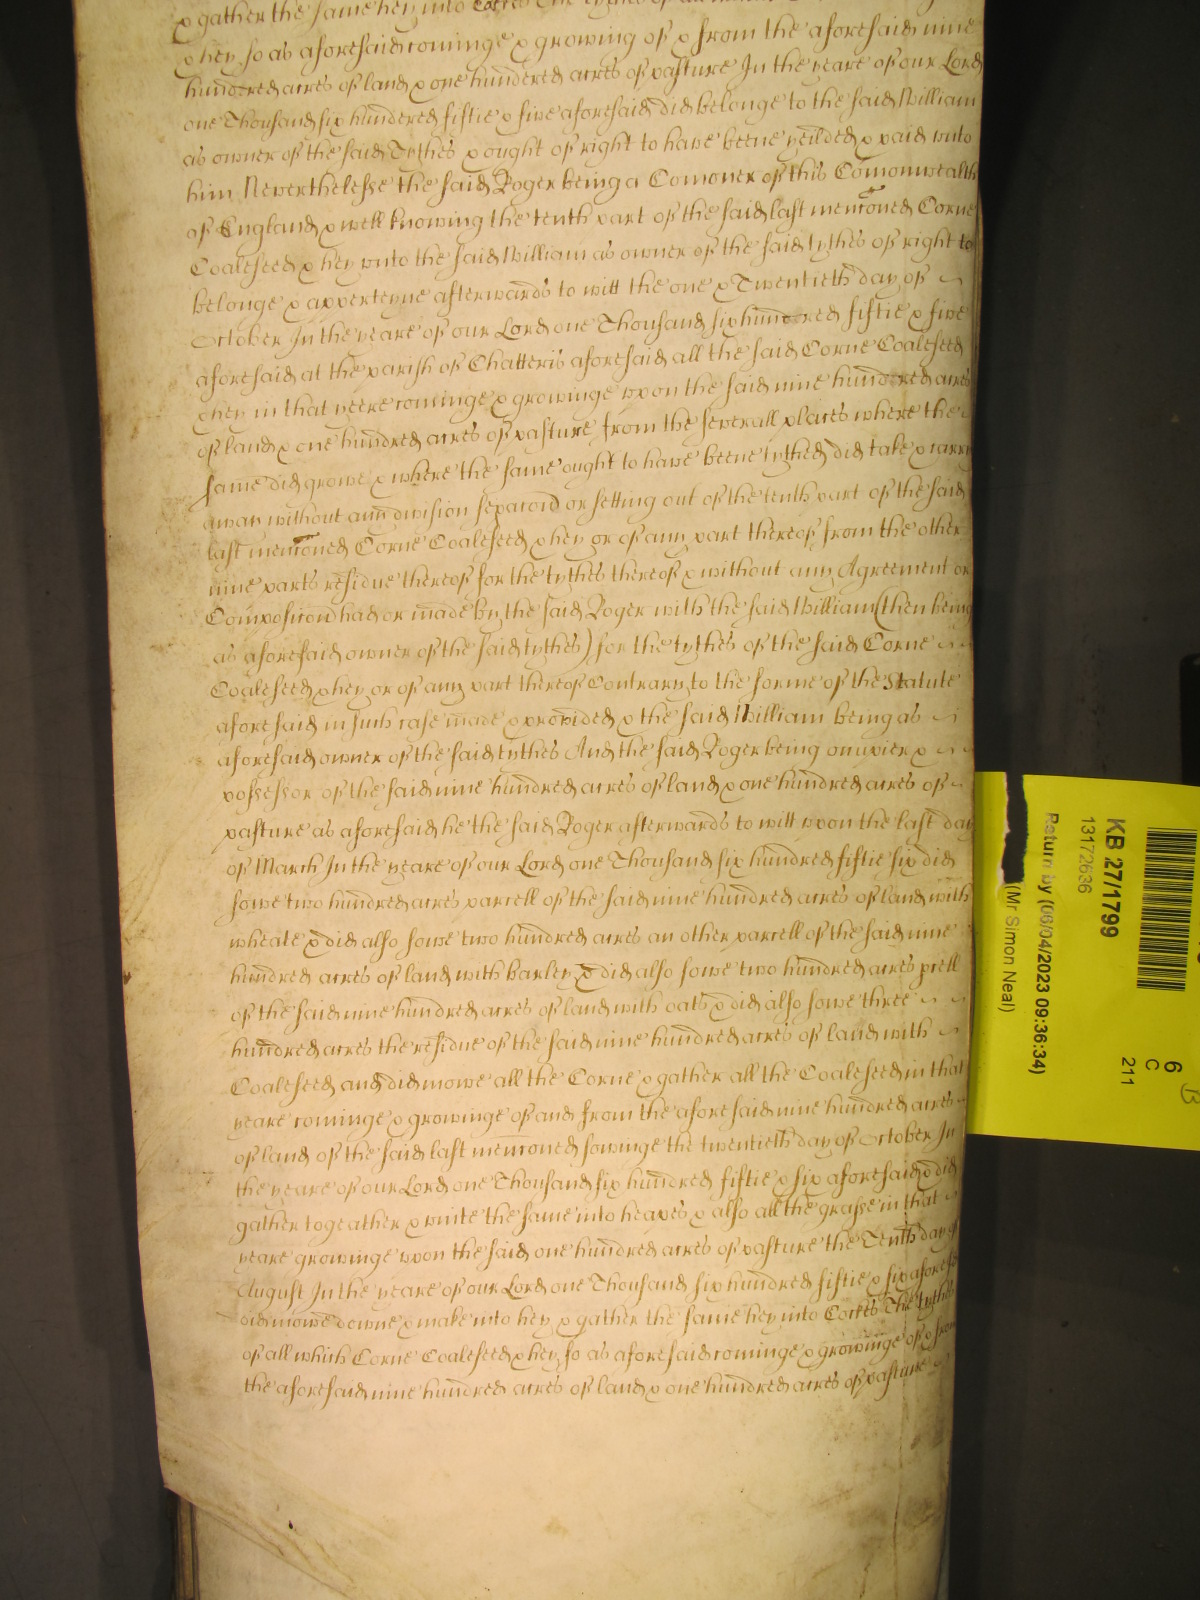 & gather the same hey into Cockes The tythes of all
& hey so as aforesaid cominge & growing of & from the aforesaid nine
hundered acres of land & one hundered acres of pasture In the yeare of our Lord
one Thousand six hundered fiftie & five aforesaid did belonge to the said William
as owner of the said Tythes & ought of right to have beene yeilded & paid unto
him Neverthelesse the said Roger being a Comoner of this Comonwealth
of England & well knowing the tenth part of the said last mencõned Corne
Coaleseed & hey unto the said William as owner of the said tythes of right to
belonge & apperteyne afterwards to witt the one & Twentieth day of
October In the yeare of our Lord one Thousand six hundred fiftie & five
aforesaid at the parish of Chatteris aforesaid all the said Corne Coaleseed
& hey in that yeere cominge & growinge upon the said nine hundred acres
of land & one hundred acres of pasture from the severall places where the
same did growe & where the same ought to have beene tythed did take & carry
away without any division separacõn or setting out of the tenth part of the said
last mencõned Corne Coaleseed & hey or of any part thereof from the other
nine parts residue thereof for the tythes thereof & without any Agreement or
Composicõn had or made by the said Roger with the said William (then being
as aforesaid owner of the said tythes) for the tythes of the said Corne
Coaleseed & hey or of any part thereof Contrary to the forme of the Statute
aforesaid in such case made & provided & the said William being as
aforesaid owner of the said tythes And the said Roger being occupier &
possessor of the said nine hundred acres of land & one hundred acres of
pasture as aforesaid he the said Roger afterwards to witt upon the last day
of March In the yeare of our Lord one Thousand six hundred fiftie six did
sowe two hundred acres parcell of the said nine hundred acres of land with
wheate & did also sowe two hundred acres an other parcell of the said nine
hundred acres of land with barley & did also sowe two hundred acres pcell
of the said nine hundred acres of land with oats & did also sowe three
hundred acres the residue of the said nine hundred acres of land with
Coaleseed and did mowe all the Corne & gather all the Coaleseed in that
yeare cominge & growinge of and from the aforesaid nine hundred acres
of land of the said last mencõned sowinge the twentieth day of October In
the yeare of our Lord one Thousand six hundred fiftie & six aforesaid & did
gather togeather & unite the same into heapes & also all the grasse in that
yeare growinge upon the said one hundred acres of pasture the Tenth day of
August In the yeare of our Lord one Thousand six hundred fiftie & six aforesaid
did mowe downe & make into hey & gather the same hey into Cockes The tythes
of all which Corne Coaleseed & hey so as aforesaid cominge & growinge of & from
the aforesaid nine hundred acres of land & one hundred acres of pasture
KB 27/1799
13172636
Return by (06/04/2023 09:36:34)
(Mr Simon Neal)
6
C
211
B